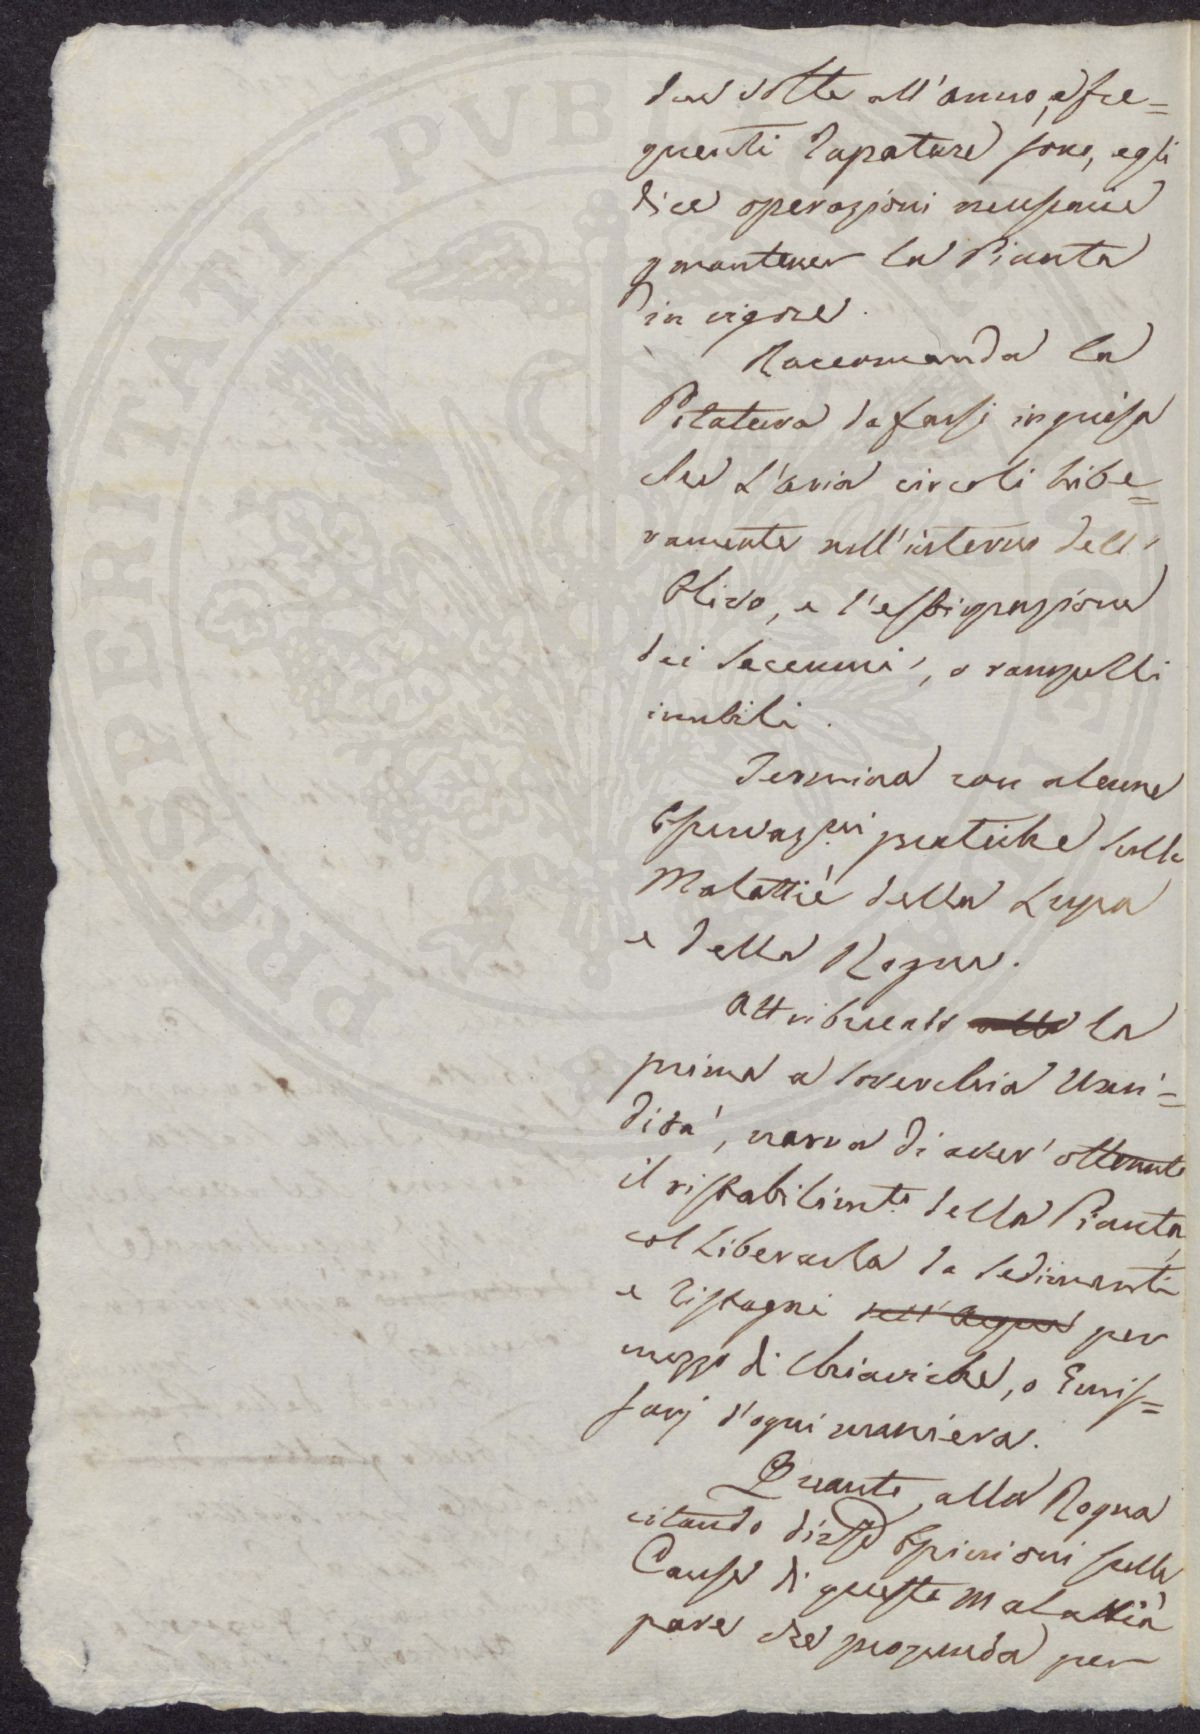 due volte all'anno, e fre=
quenti Zapature sono, egli
dice operazioni necessarie
p mantener la Pianta
in vigore.
Raccomanda la
Potatura da farsi in guisa
che l'aria circoli libe=
ramente nell'interno dell'
Olivo, e l'estirpazione
dei Seccumi, o rampolli
inutili.
Termina con alcune
Osservaz.ni pratiche sulle
Malattie della Lupa
e della Rogna.
Attribuendo alla la
prima a soverchia Umi=
dità, narra di aver ottenuto
il ristabilim.to della Pianta
col liberarla da sedimenti
e ristagni dell'acqua per
mezzo di Chiaviche, o Emis=
sarj d'ogni maniera.
Quanto alla Rogna
citando diverse Opinioni sulle
Cause di questa Malattia
pare che propenda per
PROSPERITATI PVBLICAE